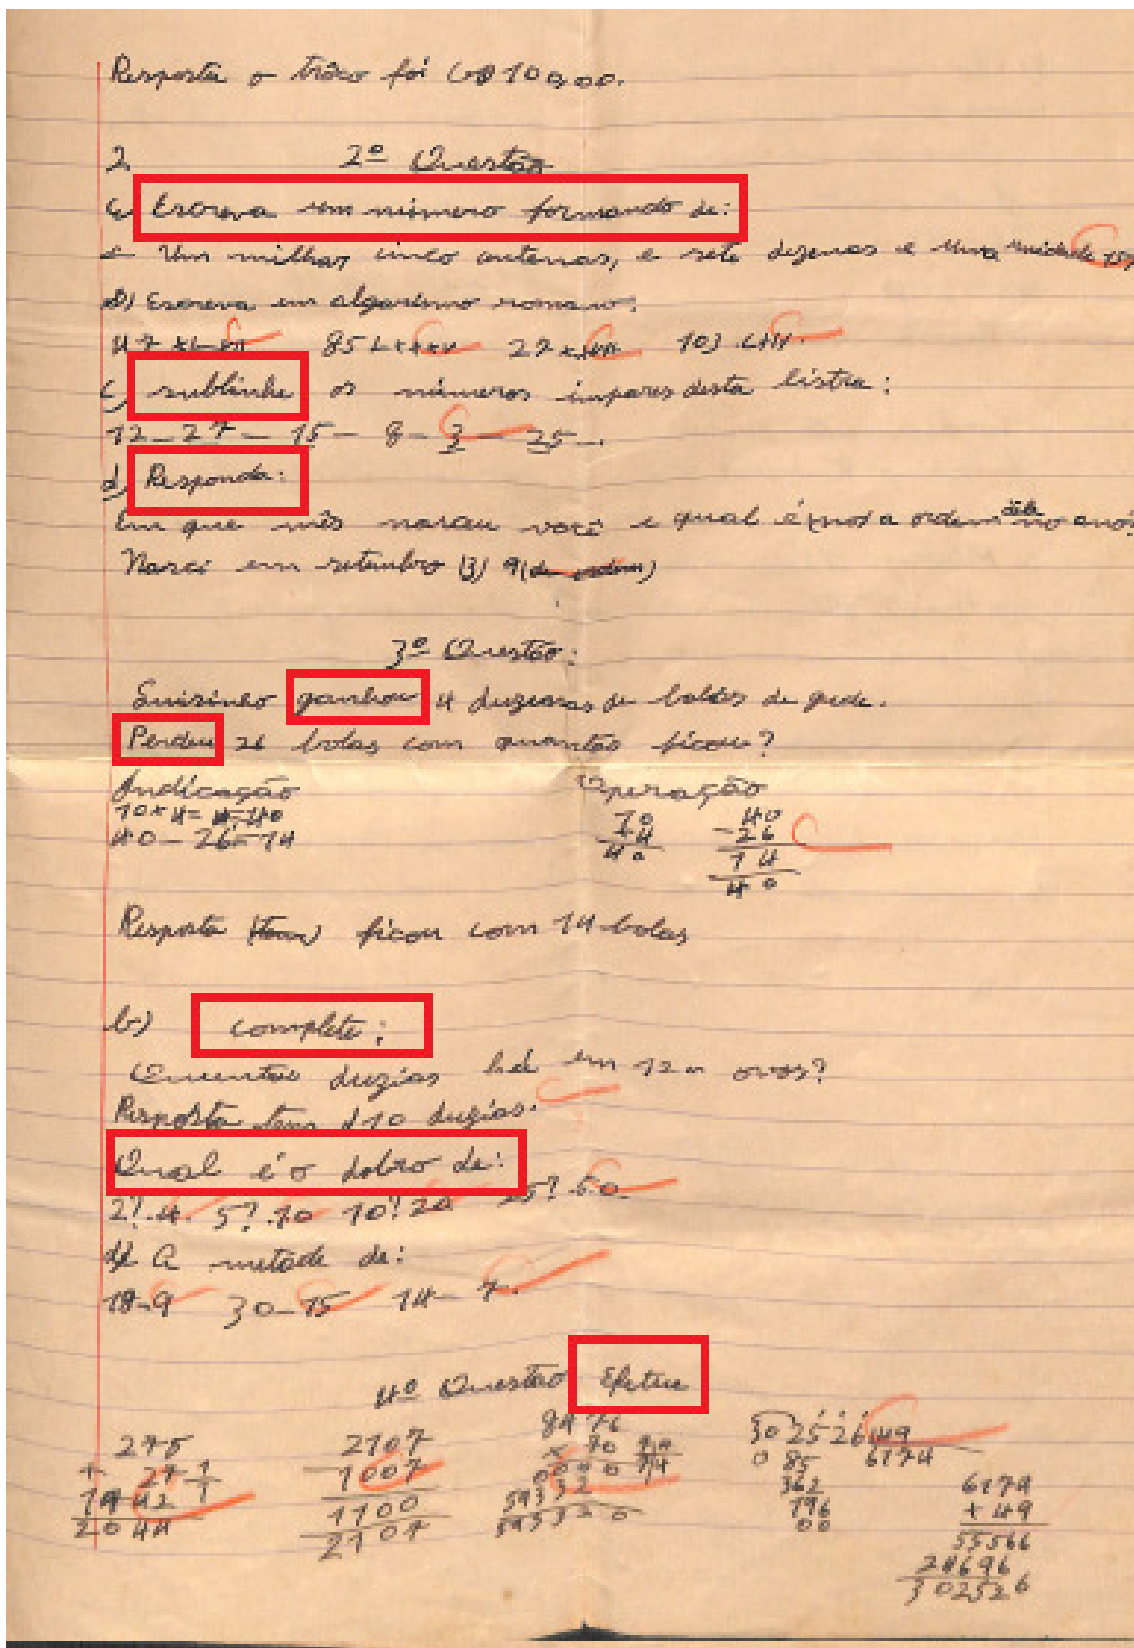 Resposta o trôco foi Cr$ 10,00.
2 2º Questão
Escreva um número formando de:
a Um milhar cinco centenas, e sete dezenas e uma unidade
b) Escreva em algarismo romano:
47 XLVII 85 LXXXV 27 XXVII 103 CIII.
c) sublinhe os números impares desta listra:
12 - 27 - 15 - 8 - 3 - 25 -.
d) Responda:
Em que mês nasceu você e qual é a ordem dêle no ano?
Nasci em setembro (3) 9 (de ordem)
3º Questão:
ganhou 4 duzenas de bolas de gude.
Perdeu 26 bolas com quantas ficou?
Indicação Operação
10 x 4 = 40
40 - 26 = 14
10 40
x4 -26
40 14
40
Resposta ficou com 14 bolas
b) complete:
Quantas duzias há em 120 ovos?
Resposta tem 10 duzias.
Qual é o dobro de:
2? .4. 5? .10 10? 20 25? .50
d) A metade de:
18-9 30-15 14-7.
4º Questão Efetue
275 2107 8476 302526 49
+ 27 - 1007 x 70 0 85 6174
1742 1100 0000 362
2044 2107 59332 196
593320 00
6174
+ 49
55566
24696
302526